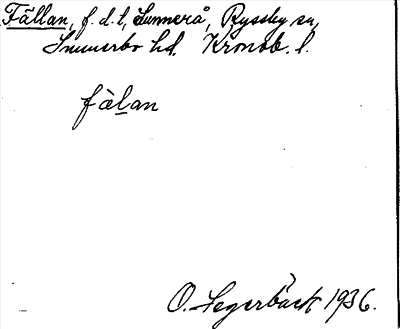 Fällan, f. d. t, Lunnerå, Ryssby sn,
Sunnerbo hd. Kronob. l.
fälan
O. Segerbäck 1936.